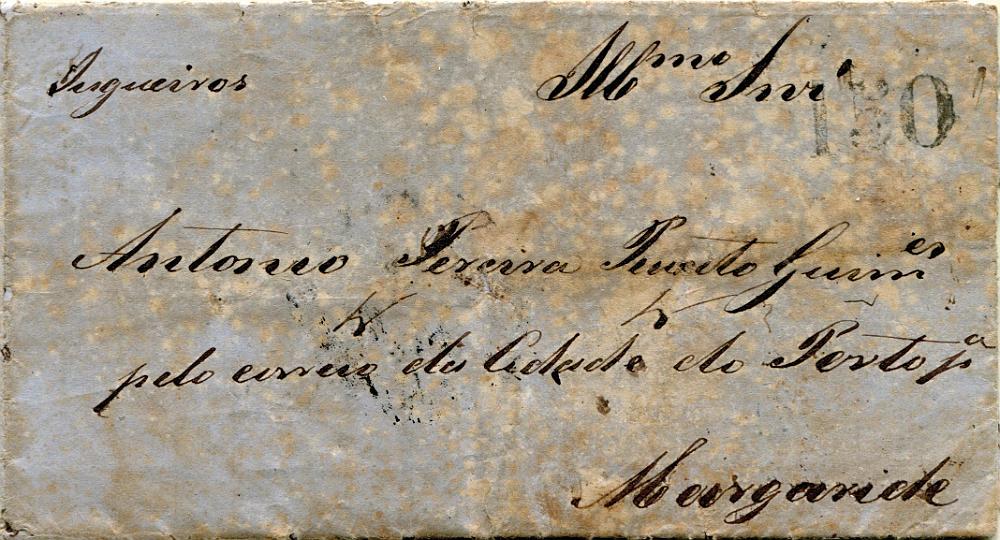 Jugueiros
Illmo Snr
150
Antonio Pereira Peixoto Guimes
pelo correio da Cidade do Porto pa
Margaride